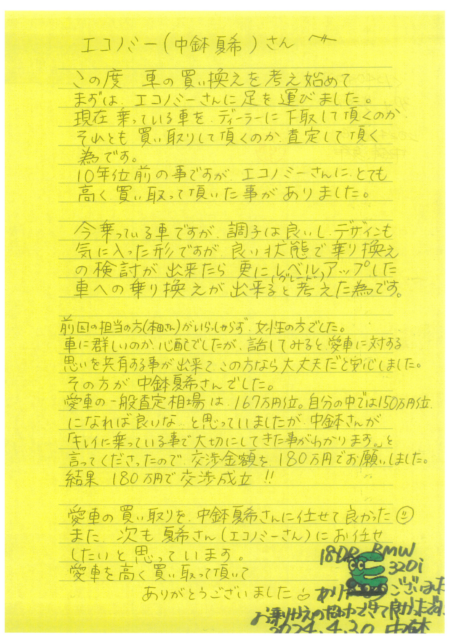 エコノミー(中鉢夏希)さん へ
この度 車の買い換えを考え始めて
まずは、エコノミーさんに足を運びました。
現在乗っている車を、ディーラーに下取して頂くのか
それとも買い取りして頂くのか査定して頂く
為です。
10年位前の事ですが エコノミーさんにとても
高く買い取って頂いた事がありました。
今乗っている車ですが、調子は良いし デザインも
気に入った形ですが 良い状態で乗り換え
の検討が出来たら 更にレベルアップした
車への乗り換えが出来ると考えた為です。
前回の担当の方(柏さん)がいらっしゃらず 女性の方でした。
車に詳しいのか心配でしたが、話してみると愛車に対する
思いを共有する事が出来て この方なら大丈夫だと安心しました。
その方が中鉢夏希さんでした。
愛車の一般査定相場は 167万円位。自分の中では150万円位
になれば良いな と思っていましたが、中鉢さんが
「キレイに乗っている事で大切にしてきた事がわかります。」と
言ってくださったので 交渉金額を 180万円でお願いしました。
結果 180万円で交渉成立!!
愛車の買い取りを、中鉢夏希さんに任せて良かった
また 次も 夏希さん(エコノミーさん)にお任せ
したいと思っています。
愛車を高く買い取って頂いて
ありがとうございました
BMW
320i
2024.4.20 中鉢